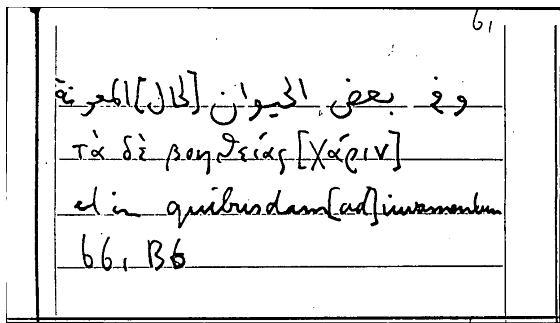 61
وفى بعض الحيوان [لحال] المعونة
τὰ δὲ βοηθείας [χάριν]
et in quibusdam [ad] iuvamentum
66, B6